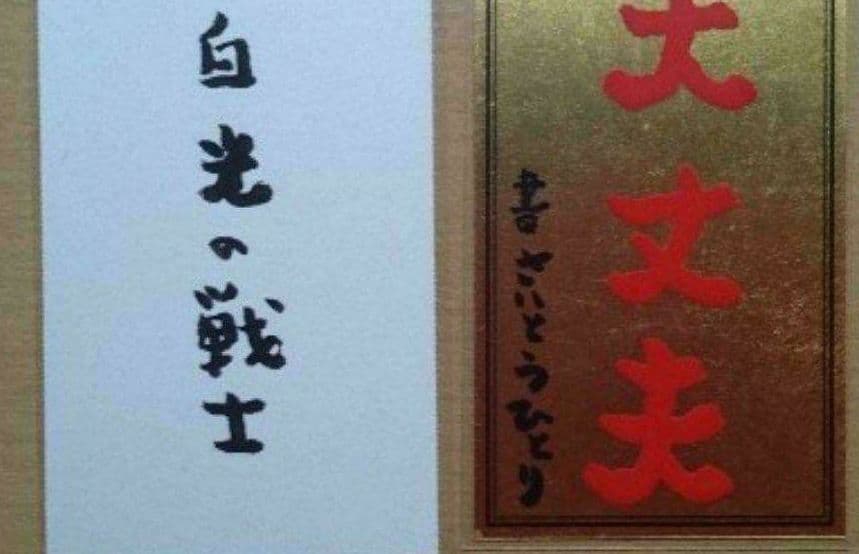 白光の戦士
大丈夫
書さいとうひとり